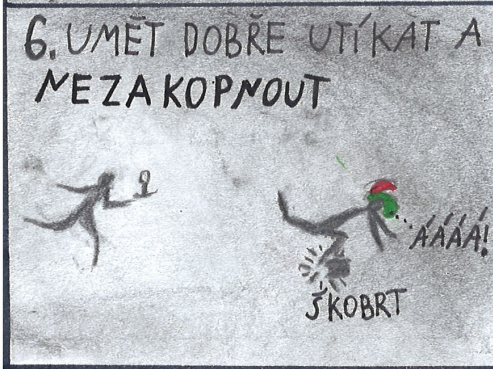 6. UMĚT DOBŘE UTÍKAT A
NEZAKOPNOUT
ÁÁÁÁ!
ŠKOBRT